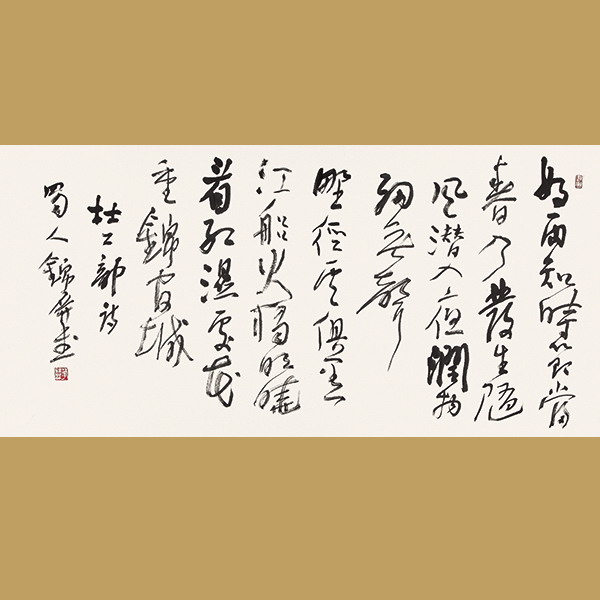 好雨知時節當
春乃發生隨
風潛入夜潤物
細無聲
野徑雲俱黑
江船火獨明曉
看紅濕處花
重錦官城
杜工部詩
蜀人錦